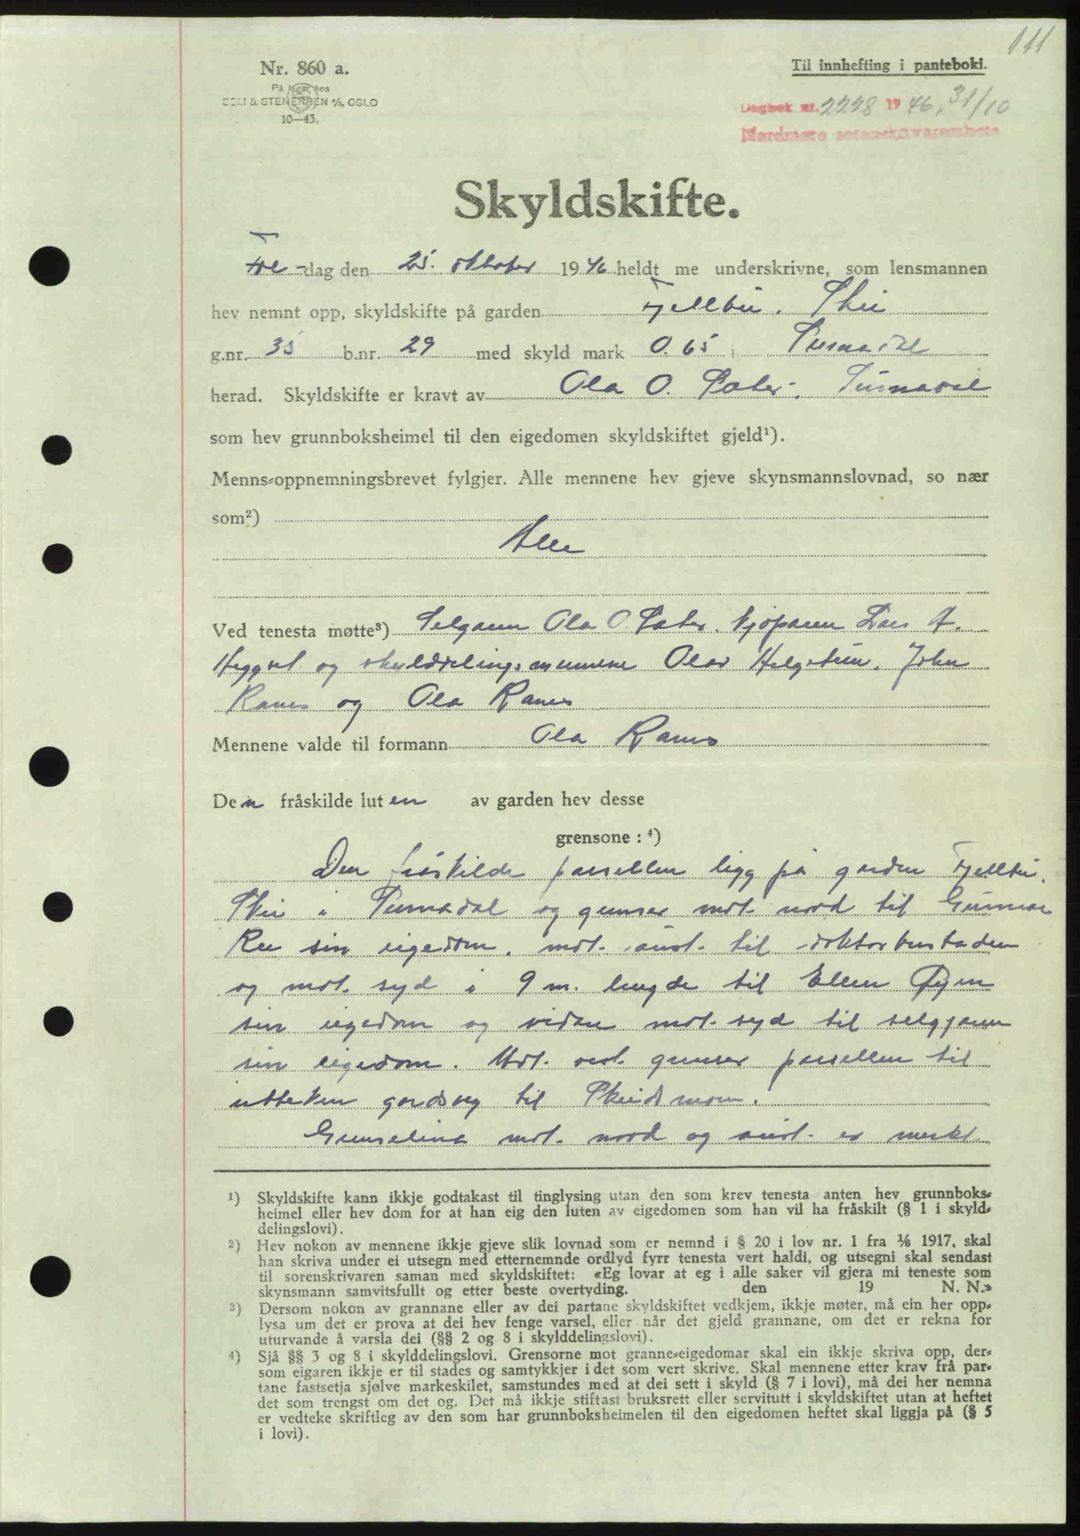 111
Nr. 860 a.
Til innhefting i pantebok.
På lager hos
SEM & STENERSEN A/S, OSLO
10—43.
Dagbok nr. 2228 1946, 31/10
Nordmøre sorenskrivarembete
Skyldskifte.
Fre-dag den 25. oktober 1946 heldt me underskrivne, som lensmannen
hev nemnt opp, skyldskifte på garden Fjellbu, Skei
g.nr. 35 b.nr. 29 med skyld mark 0.65 i Surnadal
herad. Skyldskifte er kravt av Ola O. Sæter, Surnadal
som hev grunnboksheimel til den eigedomen skyldskiftet gjeld¹).
Menns-oppnemningsbrevet fylgjer. Alle mennene hev gjeve skynsmannslovnad, so nær
som²)
Alle
Ved tenesta møtte³) Selgaren Ola O. Sæter, kjøparen Lars A.
Heggset og skylddelingsmennene Olav Helgetun, John
Ranes og Ola Ranes
Mennene valde til formann Ola Ranes
Den fråskilde luten av garden hev desse
grensone : ⁴)
Den fråskilde parsellen ligg på garden Fjellbu,
Skei i Surnadal og grenser mot nord til Gunnar
Ree sin eigedom, mot aust til doktorbustaden
og mot syd i 9 m. lengde til Ellen Øyen
sin eigedom og vidare mot syd til selgjaren
sin eigedom. Mot vest grenser parsellen til
utteken gardsveg til Skeidsmoen.
Grenselina mot nord og aust er merkt
¹) Skyldskifte kann ikkje godtakast til tinglysing utan den som krev tenesta anten hev grunnboks-
heimel eller hev dom for at han eig den luten av eigedomen som han vil ha fråskilt (§ 1 i skyld-
delingslovi).
²) Hev nokon av mennene ikkje gjeve slik lovnad som er nemnd i § 20 i lov nr. 1 fra 1/6 1917, skal
han skriva under ei utsegn med etternemnde ordlyd fyrr tenesta vert haldi, og utsegni skal sendast
til sorenskrivaren saman med skyldskiftet: «Eg lovar at eg i alle saker vil gjera mi teneste som
skynsmann samvitsfullt og etter beste overtyding. den 19 N. N.»
³) Dersom nokon av grannane eller av dei partane skyldskiftet vedkjem, ikkje møter, må ein her opp-
lysa um det er prova at dei hev fenge varsel, eller når det gjeld grannane, om det er rekna for
uturvande å varsla dei (§§ 2 og 8 i skylddelingslovi).
⁴) Sjå §§ 3 og 8 i skylddelingslovi. Grensorne mot granne-eigedomar skal ein ikkje skriva opp, der-
som eigaren ikkje er til stades og samtykkjer i det som vert skrive. Skal mennene etter krav frå par-
tane fastsetja sjølve markeskilet, samstundes med at dei sett i skyld (§ 7 i lovi), må dei her nemna
det som trengst om det og. Det må ikkje stiftast bruksrett eller servitutt i skyldskiftet utan at heftet
er vedteke skriftleg av den som har grunnboksheimelen til den eigedomen heftet skal liggja på (§ 5
i lovi).